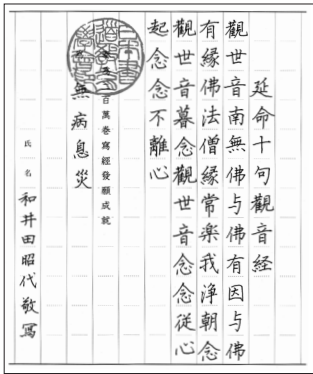 延命十句觀音経
觀世音南無佛与佛有因与佛
有縁佛法僧縁常楽我浄朝念
觀世音暮念觀世音念念從心
起念念不離心
百萬巻寫經發願成就
無病息災
氏名 和井田昭代敬寫